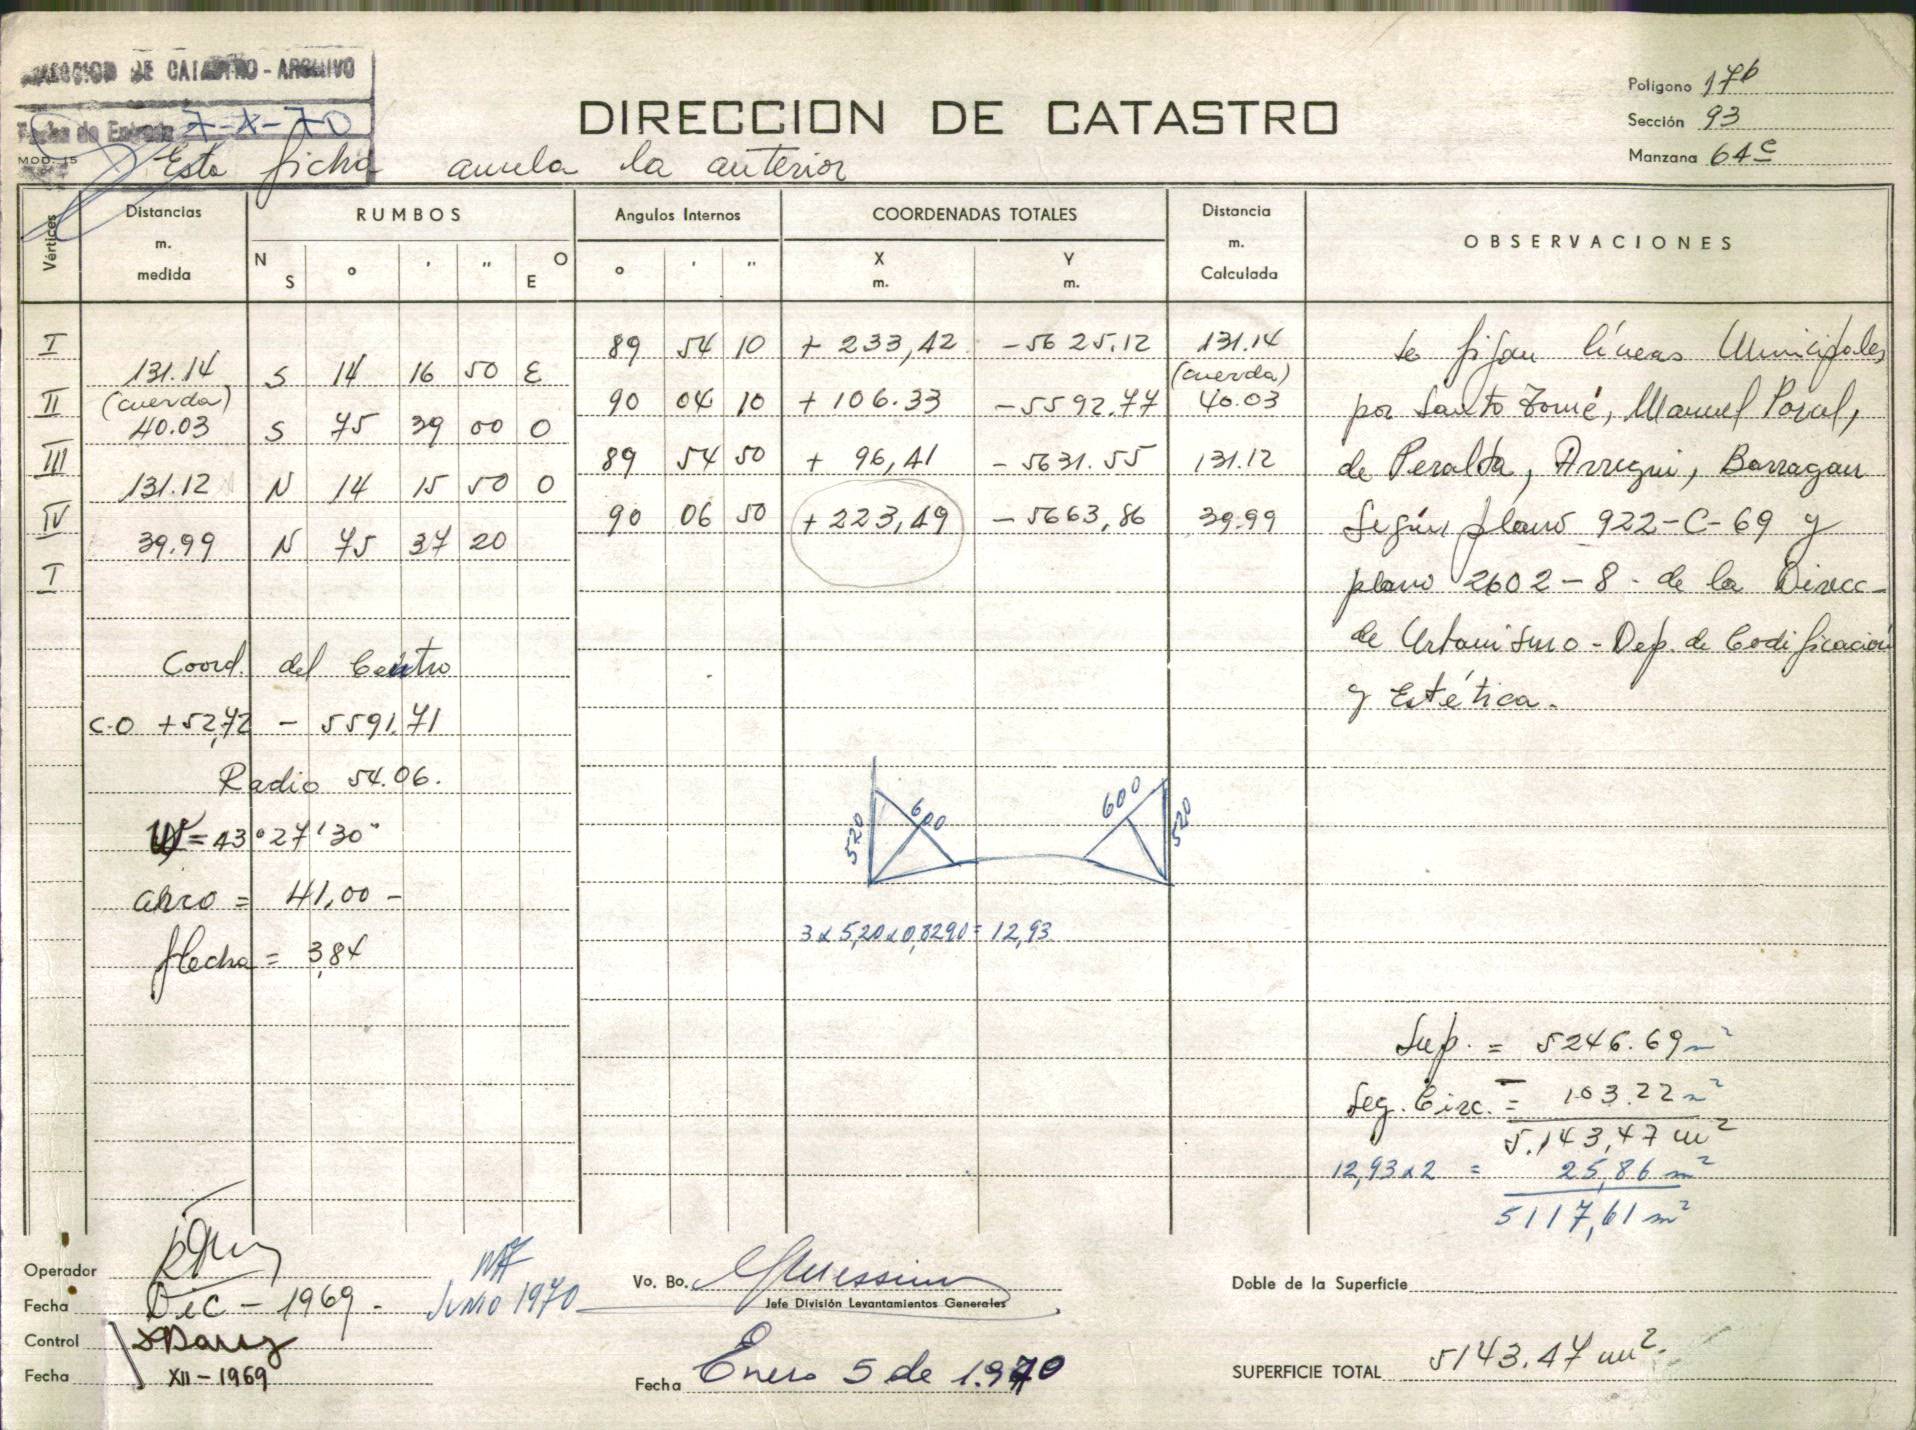 DIRECCION DE CATASTRO - ARCHIVO
Fecha de Entrada 7-X-70
MOD. 15
Esta ficha anula la anterior
DIRECCION DE CATASTRO
Polígono 17b
Sección 93
Manzana 64c
Vértices
Distancias m. medida
RUMBOS
N S ° ' " O E
Angulos Internos
° ' "
COORDENADAS TOTALES
X m. Y m.
Distancia m. Calculada
OBSERVACIONES
I 89 54 10 + 233,42 - 5625.12 131.14 (cuerda)
131.14 (cuerda) S 14 16 50 E
II 90 04 10 + 106.33 - 5592.77 40.03
40.03 S 75 39 00 O
III 89 54 50 + 96,41 - 5631.55 131.12
131.12 N 14 15 50 O
IV 90 06 50 + 223,49 - 5663,86 39.99
39.99 N 75 37 20
I
Se fijan líneas Municipales
por Santo Tomé, Manuel Porcel,
de Peralta, Arregui, Barragan
Según plano 922-C-69 y
plano 2602-8- de la Direcc-
de Urbanismo - Dep. de Codificación
y Estética.
Coord. del Centro
C-O +52,72 - 5591.71
Radio 54.06.
W = 43°27'30"
arco = 41,00 -
flecha = 3,84
520 600
600 520
3 x 5,20 x 0,8290 = 12,93
Sup. = 5246.69 m²
Seg. Circ. = 103.22 m²
5.143,47 m²
12,93 x 2 = 25,86 m²
5117,61 m²
Operador
Fecha Dec - 1969 -
JUNIO 1970
Control
Fecha XII - 1969
Vo. Bo.
Jefe División Levantamientos Generales
Fecha Enero 5 de 1.970
Doble de la Superficie
SUPERFICIE TOTAL 5143.47 m².